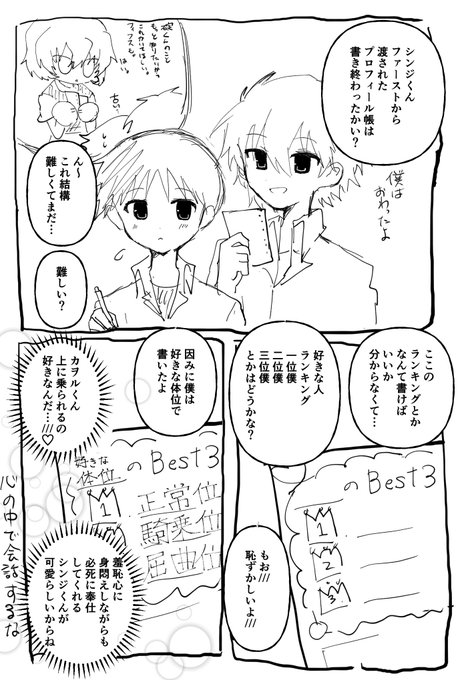 シンジくん
ファーストから
渡された
プロフィール帳は
書き終わったかい?
僕は
おわったよ
碇くんのこと
もっと知りたいから
これかいてほしい。
フィフスも
はい。
古い…
ん〜
これ結構
難しくてまだ…
難しい?
ここの
ランキングとか
なんて書けば
いいか
分からなくて…
好きな人
ランキング
一位僕
二位僕
三位僕
とかはどうかな?
のBest3
1
2
3
もお///
恥ずかしいよ///
因みに僕は
好きな体位で
書いたよ
カヲルくん
上に乗られるの
好きなんだ…///♡
好きな
体位
のBest3
1
正常位
騎乗位
屈曲位
羞恥心に
身悶えしながらも
必死に奉仕
してくれる
シンジくんが
可愛らしいからね
心の中で会話するな